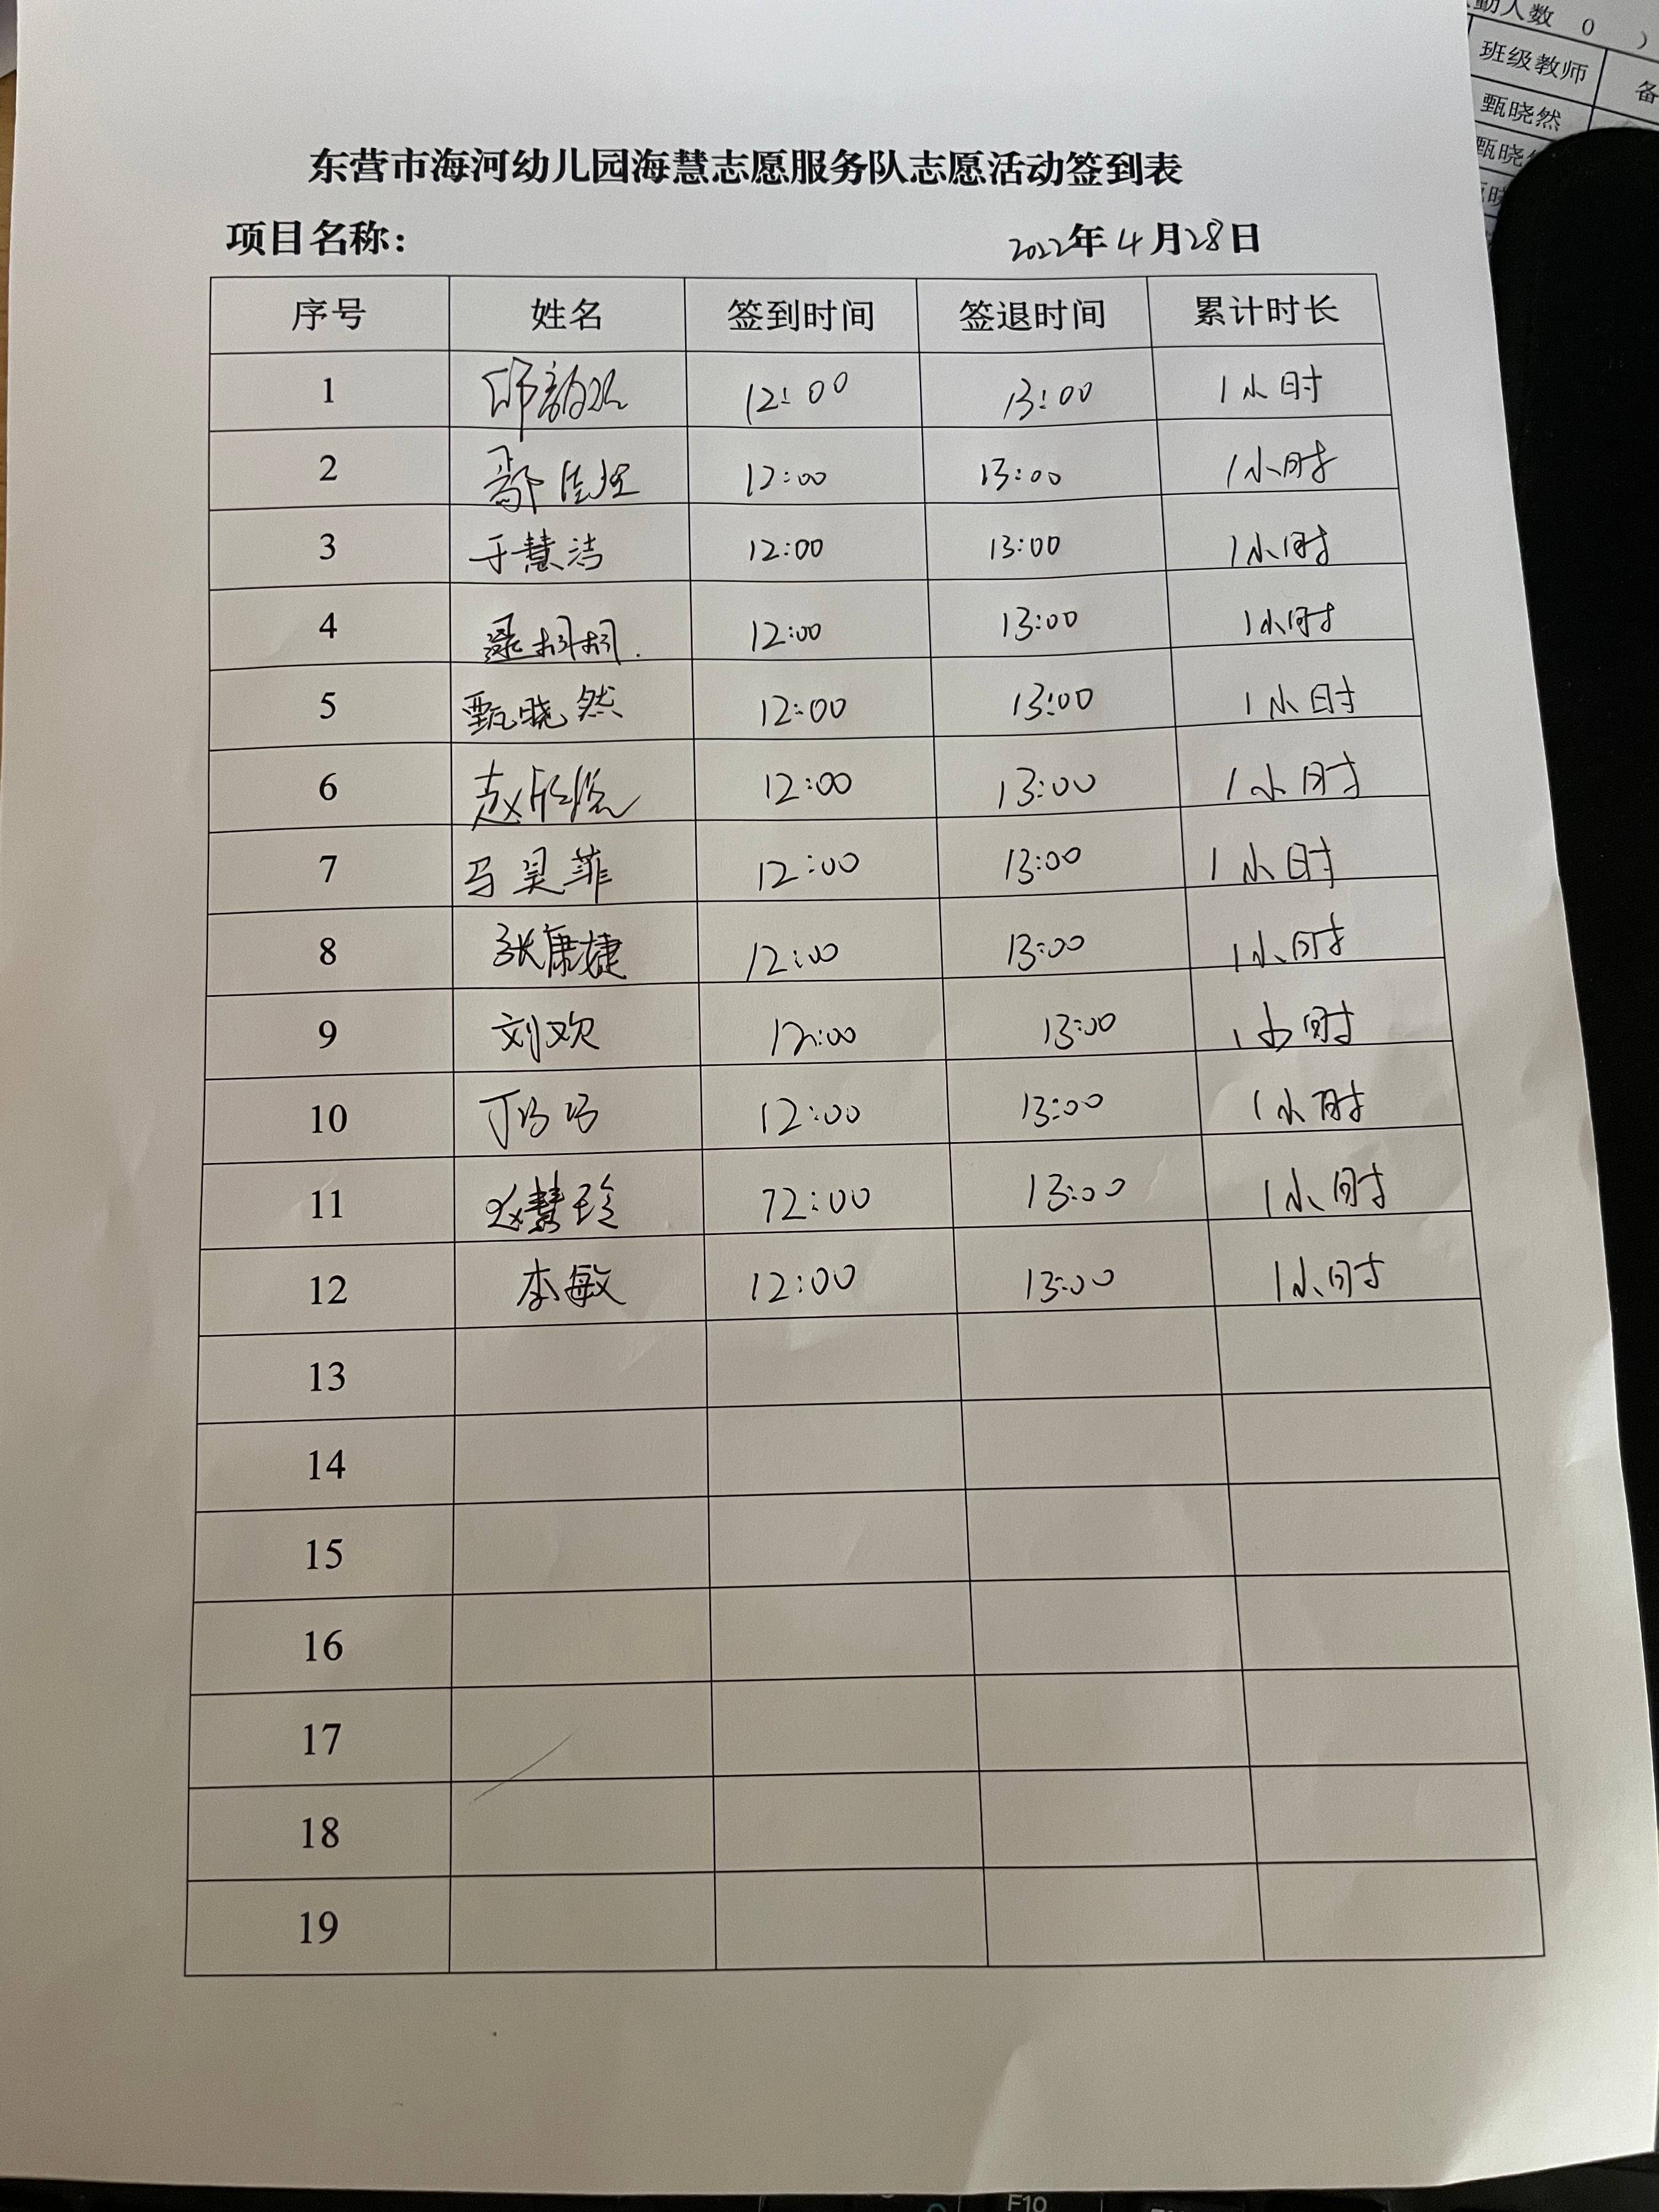 勤人数 0 )
班级教师 备
甄晓然
甄晓
东营市海河幼儿园海慧志愿服务队志愿活动签到表
项目名称: 2022年4月28日
序号 姓名 签到时间 签退时间 累计时长
1 12:00 13:00 1小时
2 12:00 13:00 1小时
3 于慧洁 12:00 13:00 1小时
4 12:00 13:00 1小时
5 甄晓然 12:00 13:00 1小时
6 赵 12:00 13:00 1小时
7 马昊菲 12:00 13:00 1小时
8 张康捷 12:00 13:00 1小时
9 刘欢 12:00 13:00 1小时
10 丁 12:00 13:00 1小时
11 赵慧玲 12:00 13:00 1小时
12 李敏 12:00 13:00 1小时
13
14
15
16
17
18
19
F10